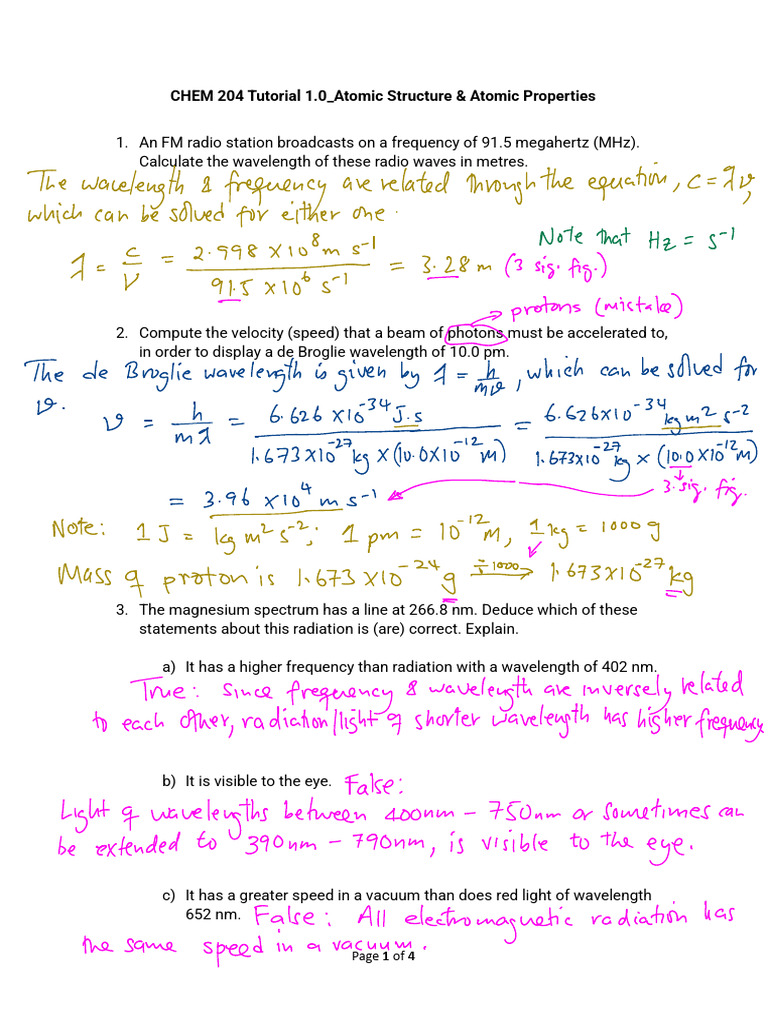 CHEM 204 Tutorial 1.0_Atomic Structure & Atomic Properties
1. An FM radio station broadcasts on a frequency of 91.5 megahertz (MHz).
Calculate the wavelength of these radio waves in metres.
The wavelength & frequency are related through the equation, c = λν,
which can be solved for either one.
Note that Hz = s⁻¹
λ = c/ν = 2.998 × 10⁸ m s⁻¹ / 91.5 × 10⁶ s⁻¹ = 3.28 m (3 sig. fig.)
→ protons (mistake)
2. Compute the velocity (speed) that a beam of photons must be accelerated to,
in order to display a de Broglie wavelength of 10.0 pm.
The de Broglie wavelength is given by λ = h/mv, which can be solved for
v.
v = h/mλ = 6.626 × 10⁻³⁴ J.s / 1.673 × 10⁻²⁷ kg × (10.0 × 10⁻¹² m) = 6.626 × 10⁻³⁴ kg m² s⁻² / 1.673 × 10⁻²⁷ kg × (10.0 × 10⁻¹² m)
3. sig. fig.
= 3.96 × 10⁴ m s⁻¹
Note: 1 J = kg m² s⁻²; 1 pm = 10⁻¹² m, 1 kg = 1000 g
Mass of proton is 1.673 × 10⁻²⁴ g ÷1000 → 1.673 × 10⁻²⁷ kg
3. The magnesium spectrum has a line at 266.8 nm. Deduce which of these
statements about this radiation is (are) correct. Explain.
a) It has a higher frequency than radiation with a wavelength of 402 nm.
True: Since frequency & wavelength are inversely related
to each other, radiation/light of shorter wavelength has higher frequency
b) It is visible to the eye. False:
Light of wavelengths between 400nm – 750nm or sometimes can
be extended to 390nm – 790nm, is visible to the eye.
c) It has a greater speed in a vacuum than does red light of wavelength
652 nm. False: All electromagnetic radiation has
the same speed in a vacuum.
Page 1 of 4